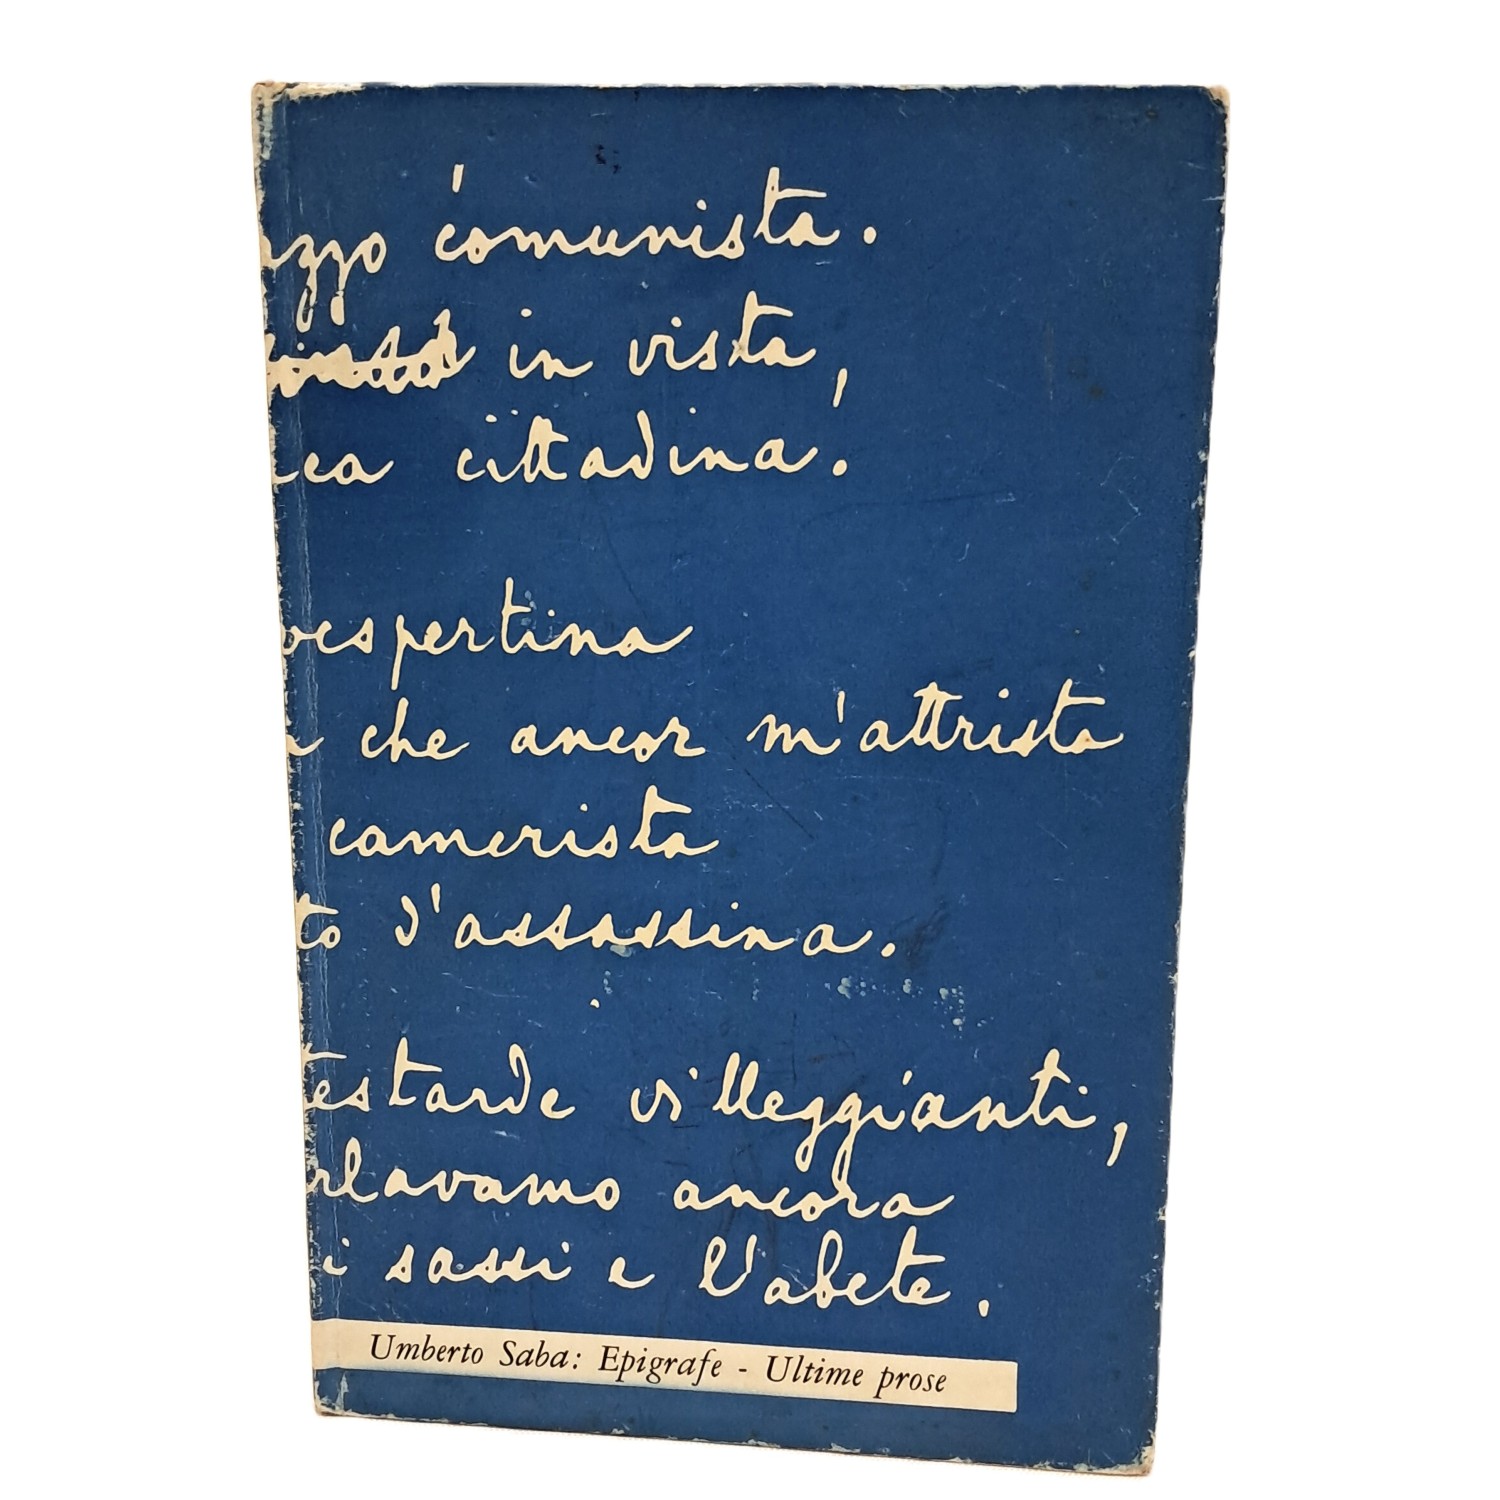 azzo comunista.
in vista,
ica cittadina.
vespertina
che ancor m'attrista
camerista
to d'assassina.
testarde villeggianti,
rlavamo ancora
i sassi e l'abete.
Umberto Saba: Epigrafe - Ultime prose